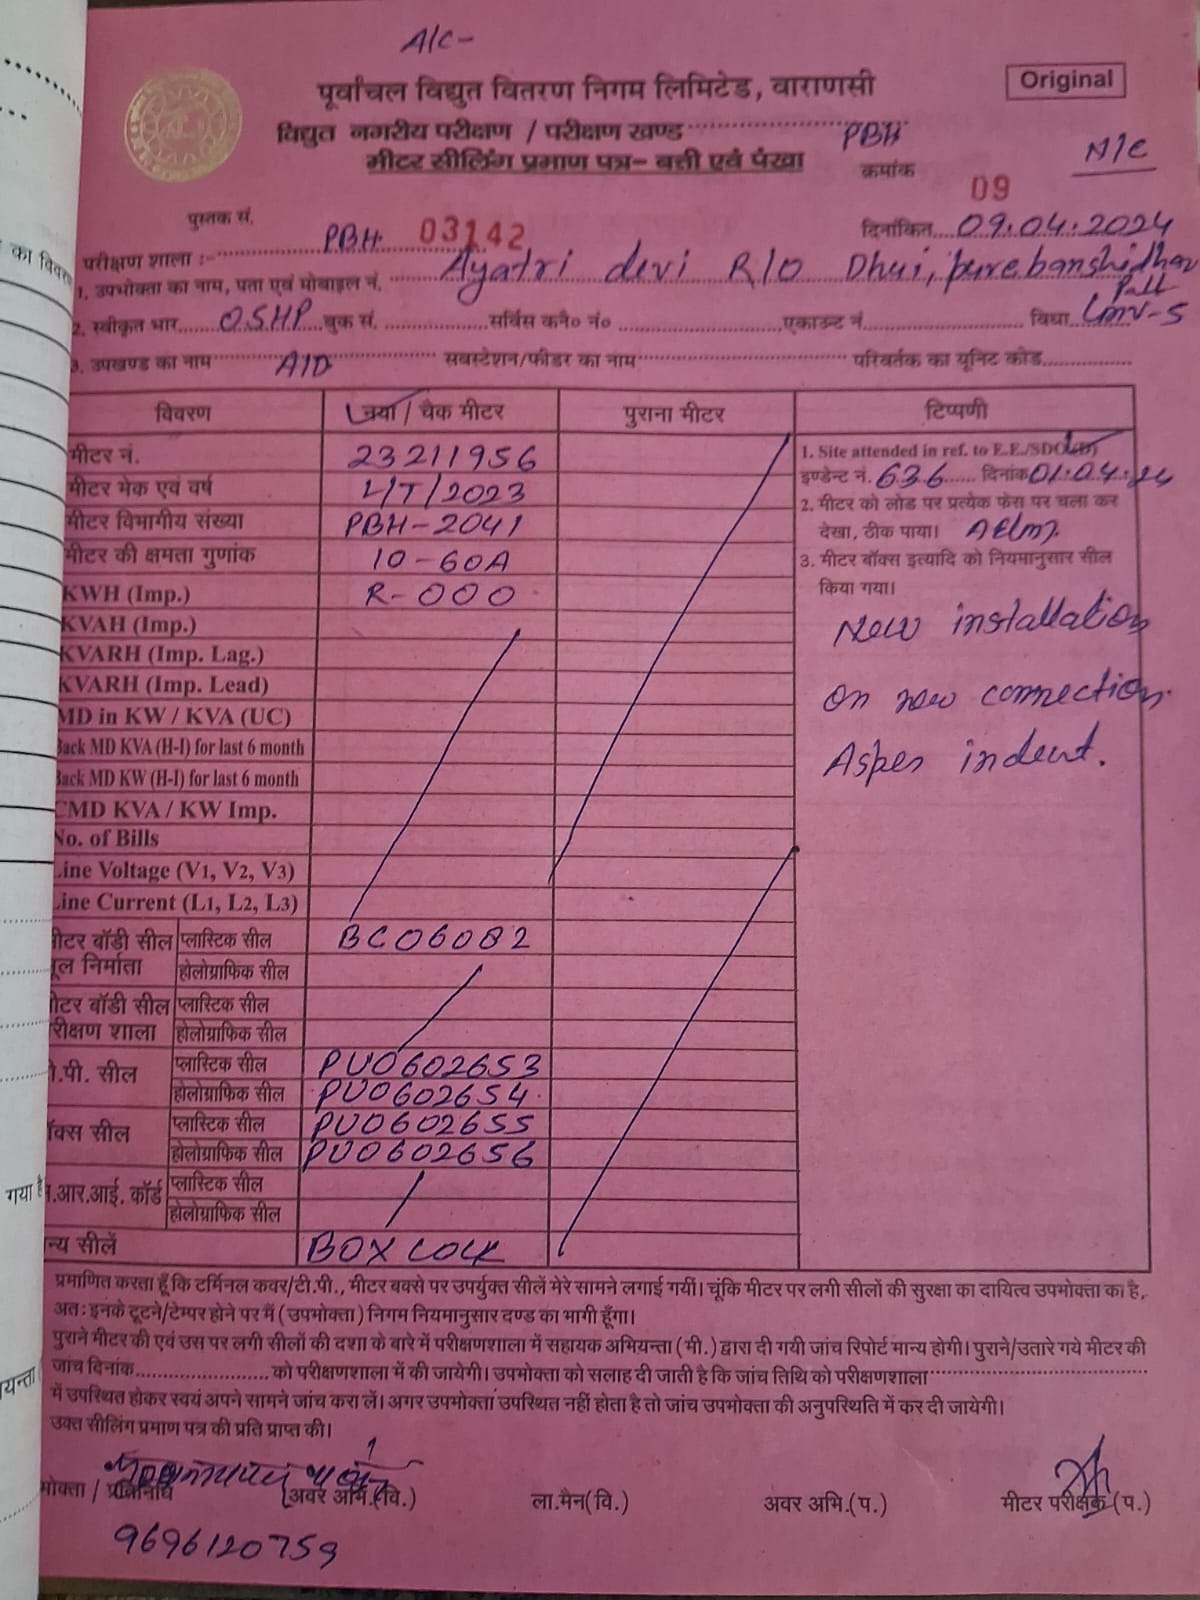 A/C-
Original
पूर्वांचल विद्युत वितरण निगम लिमिटेड, वाराणसी
विद्युत नगरीय परीक्षण / परीक्षण खण्ड PBH
मीटर सीलिंग प्रमाण पत्र- बत्ती एवं पंखा
N/C
क्रमांक 09
पुस्तक सं. 03142
दिनांकित 09.04.2024
परीक्षण शाला :- PBH
1. उपभोक्ता का नाम, पता एवं मोबाइल नं. Ayatri devi R/O Dhui, purebanshidhar
Patti
2. स्वीकृत भार 05HP बुक सं. सर्विस कनै० नं० एकाउन्ट नं. विधा LMV-5
3. उपखण्ड का नाम सबस्टेशन/फीडर का नाम परिवर्तक का यूनिट कोड
विवरण नया / चैक मीटर पुराना मीटर टिप्पणी
मीटर नं. 23211956
मीटर मेक एवं वर्ष L/T/2023
मीटर विभागीय संख्या PBH-2041
मीटर की क्षमता गुणांक 10-60A
KWH (Imp.) R-000
KVAH (Imp.)
KVARH (Imp. Lag.)
KVARH (Imp. Lead)
MD in KW / KVA (UC)
Back MD KVA (H-I) for last 6 month
Back MD KW (H-I) for last 6 month
CMD KVA / KW Imp.
No. of Bills
Line Voltage (V1, V2, V3)
Line Current (L1, L2, L3)
1. Site attended in ref. to E.E./SDO
इण्डेन्ट नं. 636 दिनांक 01.04.24
2. मीटर को लोड पर प्रत्येक फेस पर चला कर
देखा, ठीक पाया।
3. मीटर बॉक्स इत्यादि को नियमानुसार सील
किया गया।
New installation
on new connection.
Asper indent.
मीटर बॉडी सील प्लास्टिक सील BC06082
मूल निर्माता होलोग्राफिक सील
मीटर बॉडी सील प्लास्टिक सील
परीक्षण शाला होलोग्राफिक सील
टी.पी. सील प्लास्टिक सील PU0602653
होलोग्राफिक सील PU0602654
बॉक्स सील प्लास्टिक सील PU0602655
होलोग्राफिक सील PU0602656
.आर.आई. कॉर्ड प्लास्टिक सील
होलोग्राफिक सील
न्य सीलें BOX LOCK
प्रमाणित करता हूँ कि टर्मिनल कवर/टी.पी., मीटर बक्से पर उपर्युक्त सीलें मेरे सामने लगाई गयीं। चूंकि मीटर पर लगी सीलों की सुरक्षा का दायित्व उपभोक्ता का है,
अतः इनके टूटने/टेम्पर होने पर मैं (उपभोक्ता) निगम नियमानुसार दण्ड का भागी हूँगा।
पुराने मीटर की एवं उस पर लगी सीलों की दशा के बारे में परीक्षणशाला में सहायक अभियन्ता (मी.) द्वारा दी गयी जांच रिपोर्ट मान्य होगी। पुराने/उतारे गये मीटर की
जांच दिनांक को परीक्षणशाला में की जायेगी। उपभोक्ता को सलाह दी जाती है कि जांच तिथि को परीक्षणशाला
में उपस्थित होकर स्वयं अपने सामने जांच करा लें। अगर उपभोक्ता उपस्थित नहीं होता है तो जांच उपभोक्ता की अनुपस्थिति में कर दी जायेगी।
उक्त सीलिंग प्रमाण पत्र की प्रति प्राप्त की।
भोक्ता / प्रतिनिधि अवर अभि.(वि.) ला.मैन(वि.) अवर अभि.(प.) मीटर परीक्षक (प.)
9696120759
का विवरण
गया है
यन्ता